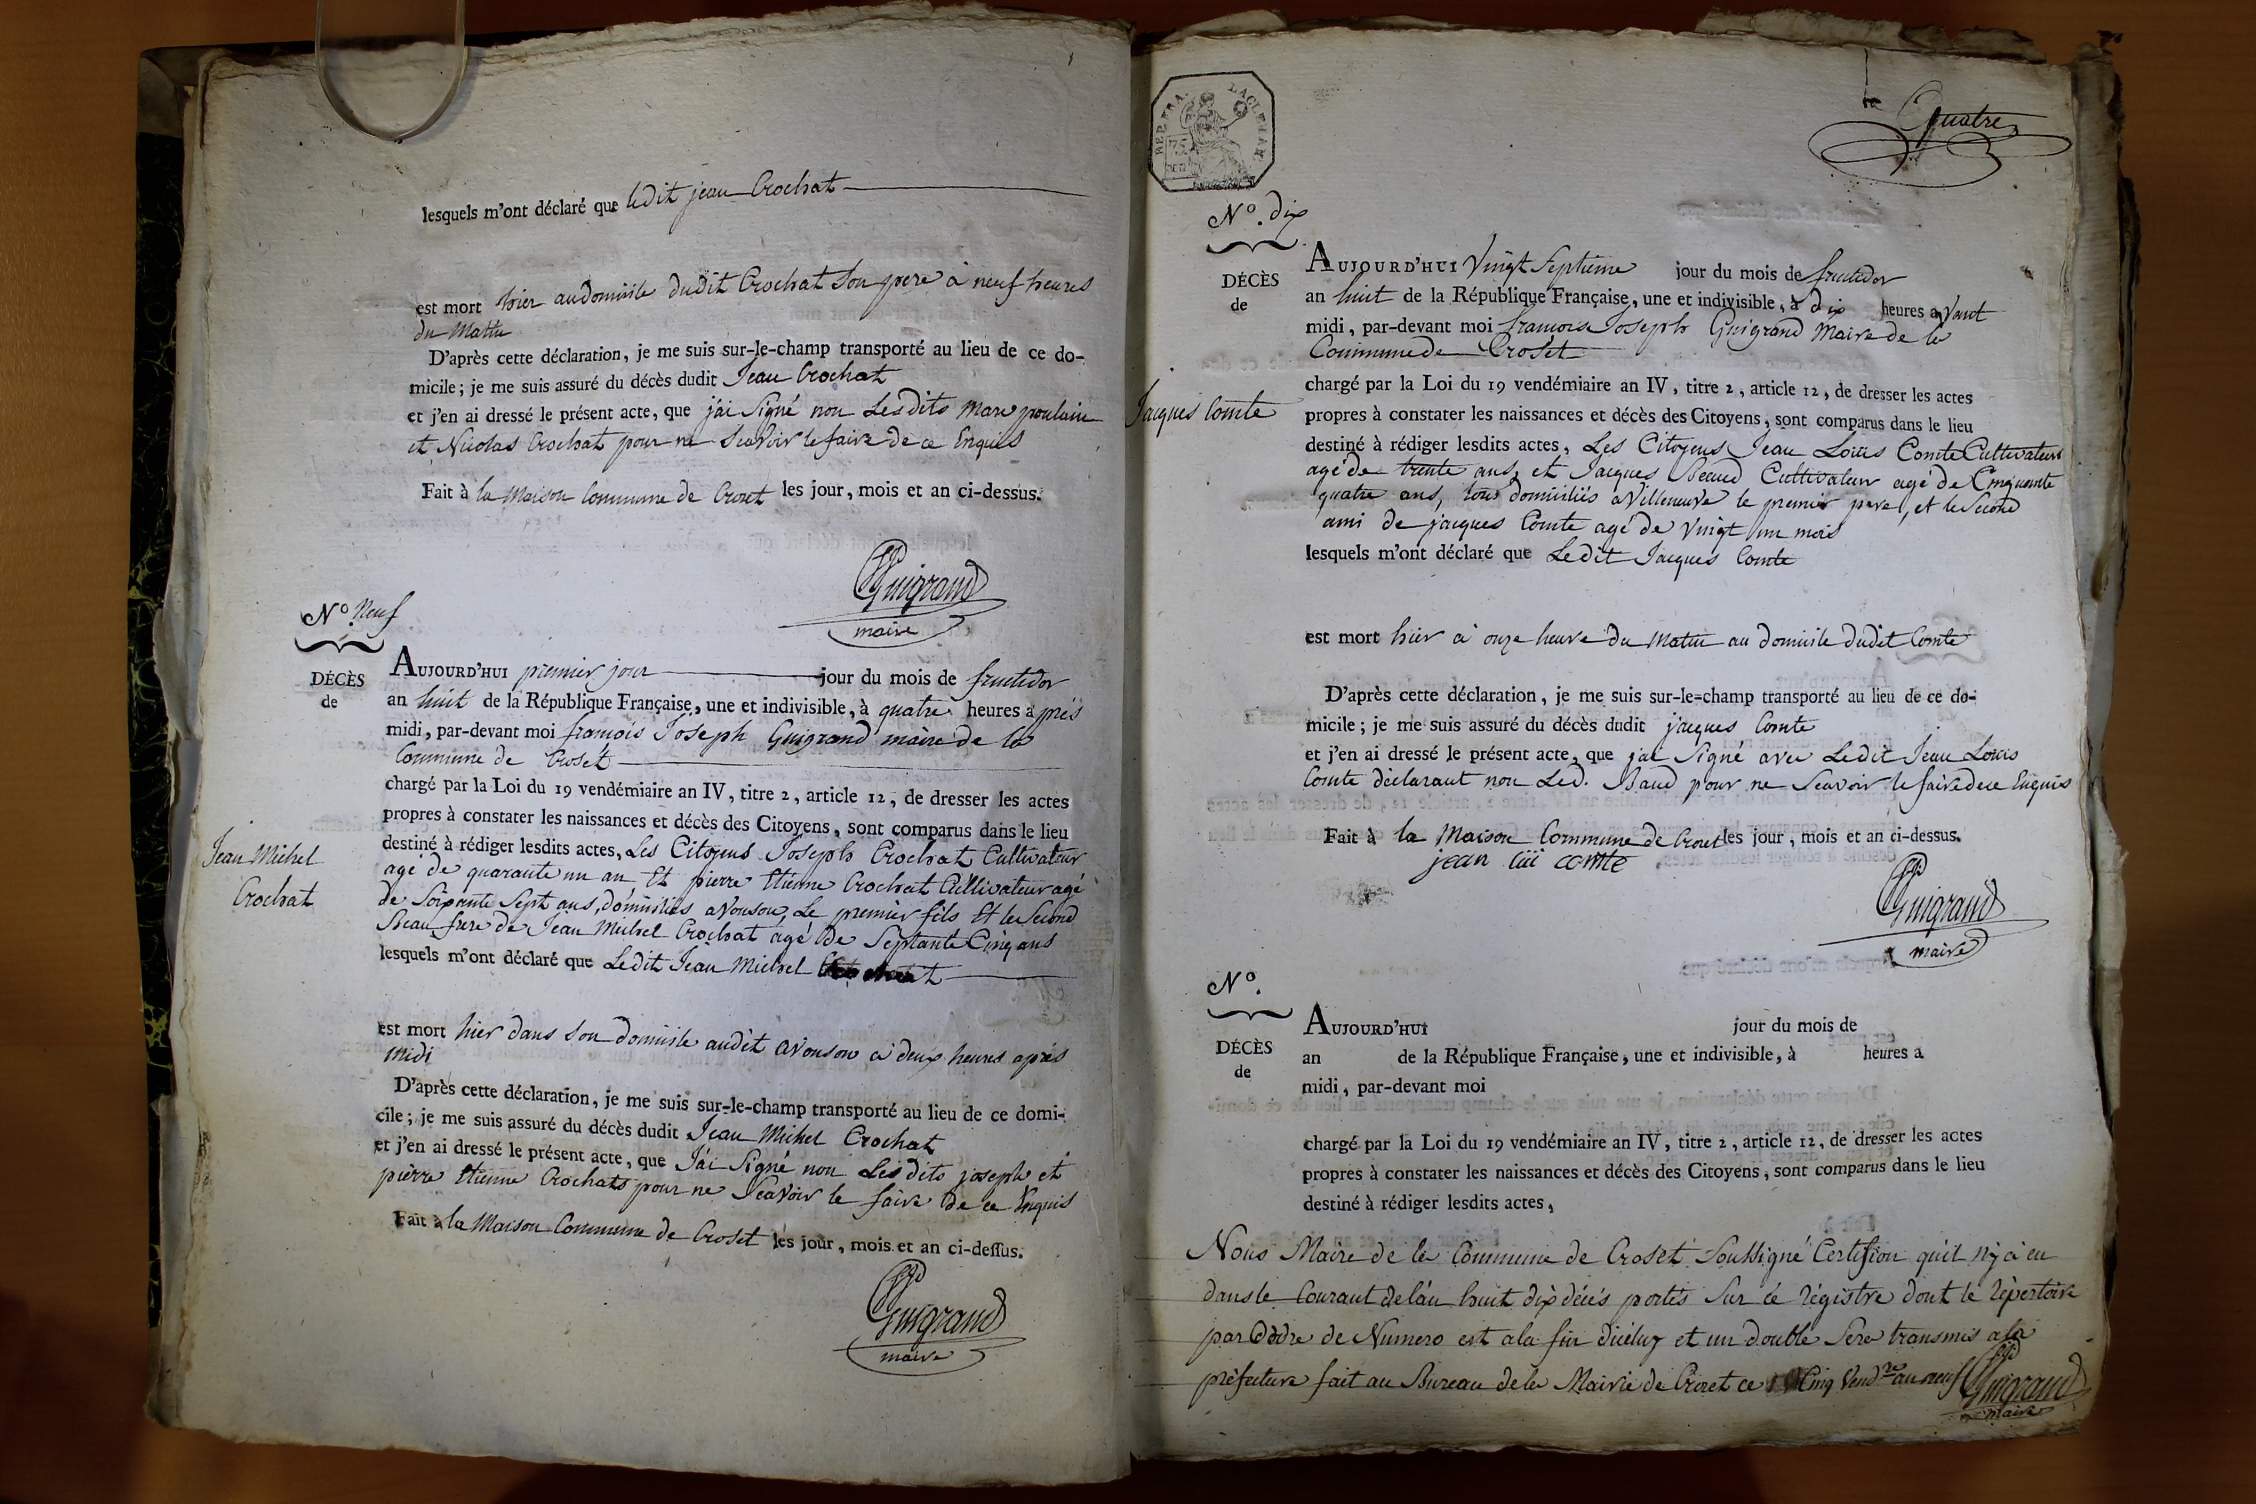 lesquels m'ont déclaré que ledit jean Crochat
est mort hier au domicile dudit Crochat Son pere à neuf heures
du Matin
D'après cette déclaration, je me suis sur-le-champ transporté au lieu de ce do-
micile ; je me suis assuré du décès dudit Jean Crochat
et j'en ai dressé le présent acte, que j'ai Signé non Lesdits Marc poulain
et Nicolas Crochat pour ne Scavoir le faire de ce Enquis
Fait à la Maison Commune de Crozet les jour, mois et an ci-dessus.
Guigrand
maire
N.º Neuf
DÉCÈS
de
Jean Michel
Crochat
AUJOURD'HUI premier jour jour du mois de fructidor
an huit de la République Française, une et indivisible, à quatre heures après
midi, par-devant moi francois Joseph Guigrand maire de la
Commune de Croset
chargé par la Loi du 19 vendémiaire an IV, titre 2, article 12, de dresser les actes
propres à constater les naissances et décès des Citoyens, sont comparus dans le lieu
destiné à rédiger lesdits actes, Les Citoyens Joseph Crochat Cultivateur
agé de quarante un an Et pierre Etienne Crochat Cultivateur agé
de Soixante Sept ans, domiciliés a Vonson, Le premier fils Et le Second
Beau frere de Jean Michel Crochat agé de Septante Cinq ans
lesquels m'ont déclaré que Ledit Jean Michel
est mort hier dans Son domicile audit avonson à deux heures après
midi
D'après cette déclaration, je me suis sur-le-champ transporté au lieu de ce domi-
cile ; je me suis assuré du décès dudit Jean Michel Crochat
et j'en ai dressé le présent acte, que J'ai Signé non Lesdits joseph et
pierre Etienne Crochats pour ne Scavoir le faire de ce Enquis
Fait à la Maison Commune de Croset les jour, mois et an ci-dessus.
Guigrand
maire
Quatre
REP. FRA.
75
N.º dix
DÉCÈS
de
Jacques Comte
AUJOURD'HUI Vingt Septieme jour du mois de fructidor
an huit de la République Française, une et indivisible, à dix heures avant
midi, par-devant moi francois Joseph Guigrand Maire de la
Commune de Croset
chargé par la Loi du 19 vendémiaire an IV, titre 2, article 12, de dresser les actes
propres à constater les naissances et décès des Citoyens, sont comparus dans le lieu
destiné à rédiger lesdits actes, Les Citoyens Jean Louis Comte Cultivateur
agé de trente ans, et Jacques Beaud Cultivateur agé de Cinquante
quatre ans, tous domiciliés a Villeneuve le premier pere, et le Second
ami de jacques Comte agé de Vingt un mois
lesquels m'ont déclaré que Ledit Jacques Comte
est mort hier à onze heure du Matin au domicile dudit Comte
D'après cette déclaration, je me suis sur-le-champ transporté au lieu de ce do-
micile ; je me suis assuré du décès dudit jacques Comte
et j'en ai dressé le présent acte, que jai Signé avec Ledit Jean Louis
Comte déclarant non Led. Baud pour ne Scavoir le faire de ce Enquis
Fait à la Maison Commune de Crozet les jour, mois et an ci-dessus.
jean lui comte
Guigrand
maire
N.º
DÉCÈS
de
AUJOURD'HUI jour du mois de
an de la République Française, une et indivisible, à heures a
midi, par-devant moi
chargé par la Loi du 19 vendémiaire an IV, titre 2, article 12, de dresser les actes
propres à constater les naissances et décès des Citoyens, sont comparus dans le lieu
destiné à rédiger lesdits actes,
Nous Maire de la Commune de Croset Soussigné Certifion qu'il n'y à eu
dans le Courant de l'an huit dix décés portés Sur cé régistre dont le répertoire
par Ordre de Numero est a la fin diceluy et un double Sera transmis a la
préfecture fait au Bureau de la Mairie de Crozet ce Cinq Vend.re an neuf
Guigrand
maire